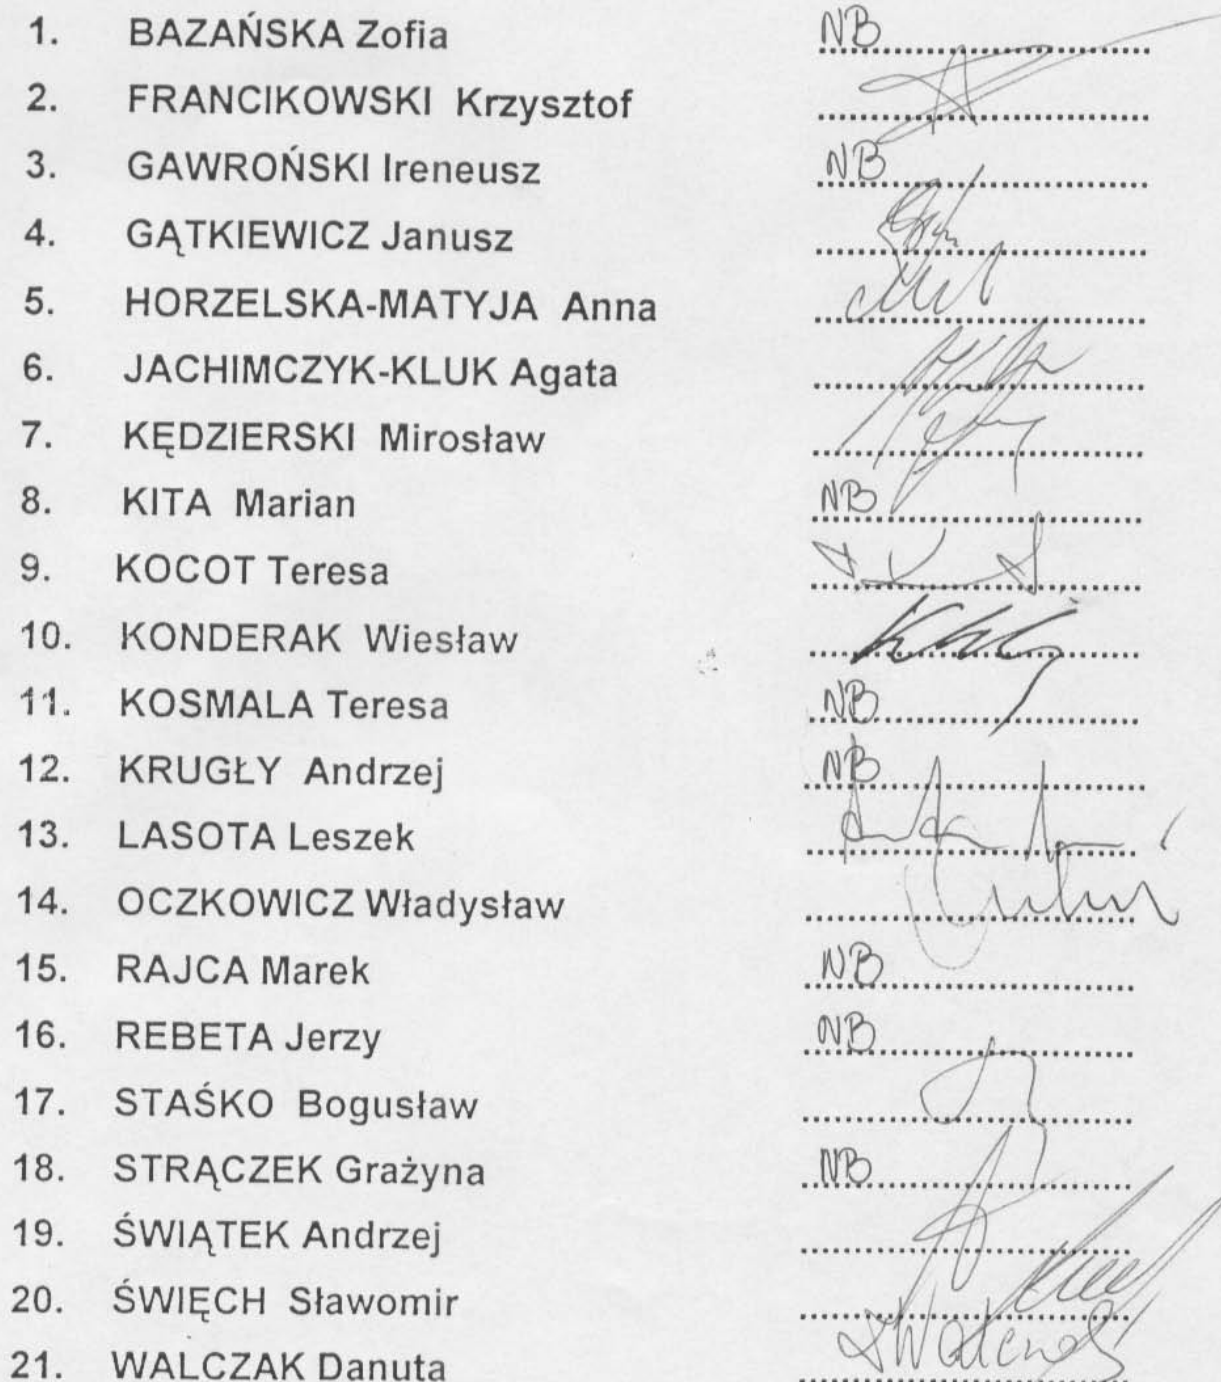 1. BAZAŃSKA Zofia NB
2. FRANCIKOWSKI Krzysztof
3. GAWROŃSKI Ireneusz NB
4. GĄTKIEWICZ Janusz
5. HORZELSKA-MATYJA Anna
6. JACHIMCZYK-KLUK Agata
7. KĘDZIERSKI Mirosław
8. KITA Marian NB
9. KOCOT Teresa
10. KONDERAK Wiesław
11. KOSMALA Teresa NB
12. KRUGŁY Andrzej NB
13. LASOTA Leszek
14. OCZKOWICZ Władysław
15. RAJCA Marek NB
16. REBETA Jerzy NB
17. STAŚKO Bogusław
18. STRĄCZEK Grażyna NB
19. ŚWIĄTEK Andrzej
20. ŚWIĘCH Sławomir
21. WALCZAK Danuta